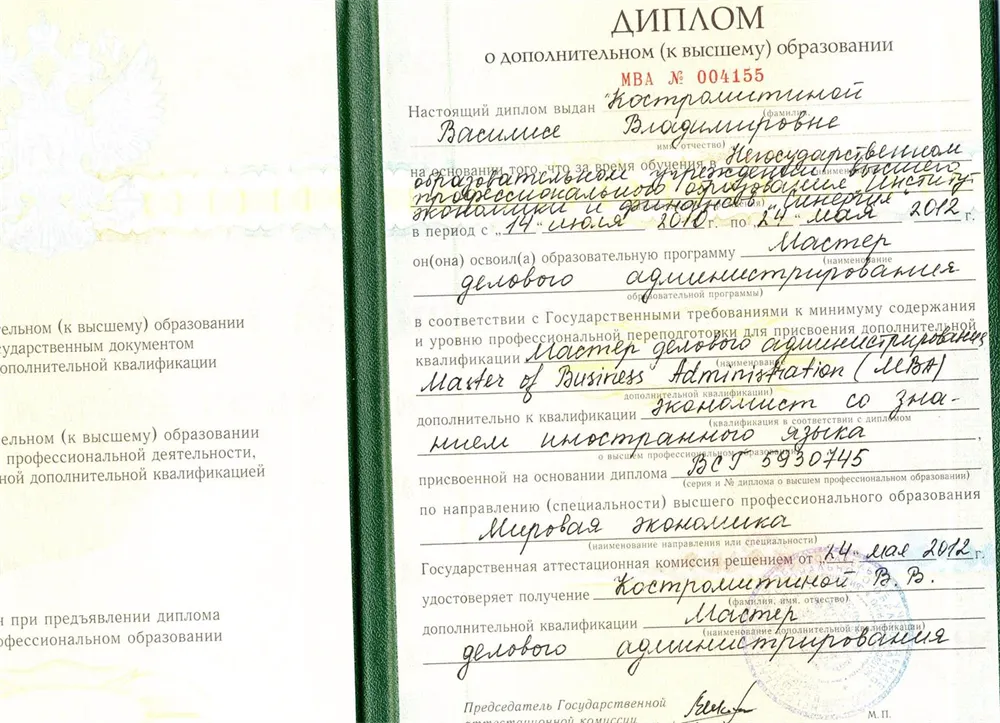 тельном (к высшему) образовании
сударственным документом
ополнительной квалификации
ельном (к высшему) образовании
профессиональной деятельности,
ной дополнительной квалификацией
н при предъявлении диплома
офессиональном образовании
ДИПЛОМ
о дополнительном (к высшему) образовании
МВА № 004155
Настоящий диплом выдан Костромитиной
(фамилия,
Василисе Владимировне
имя, отчество)
на основании того, что за время обучения в Негосударственном
образовательном учреждении высшего
профессионального образования "Институт
экономики и финансов "Синергия"
в период с "14" июля 2010 г. по "24" мая 2012 г.
он(она) освоил(а) образовательную программу Мастер
(наименование
делового администрирования
образовательной программы)
в соответствии с Государственными требованиями к минимуму содержания
и уровню профессиональной переподготовки для присвоения дополнительной
квалификации Мастер делового администрирования
(наименование
Master of Business Administration (MBA)
дополнительной квалификации)
дополнительно к квалификации экономист со зна-
(квалификация в соответствии с дипломом
нием иностранного языка,
о высшем профессиональном образовании)
присвоенной на основании диплома ВСГ 5930745
(серия и № диплома о высшем профессиональном образовании)
по направлению (специальности) высшего профессионального образования
Мировая экономика
(наименование направления или специальности)
Государственная аттестационная комиссия решением от "24" мая 2012 г.
удостоверяет получение Костромитиной В. В.
(фамилия, имя, отчество)
дополнительной квалификации Мастер
(наименование дополнительной квалификации)
делового администрирования
Председатель Государственной
аттестационной комиссии
М.П.